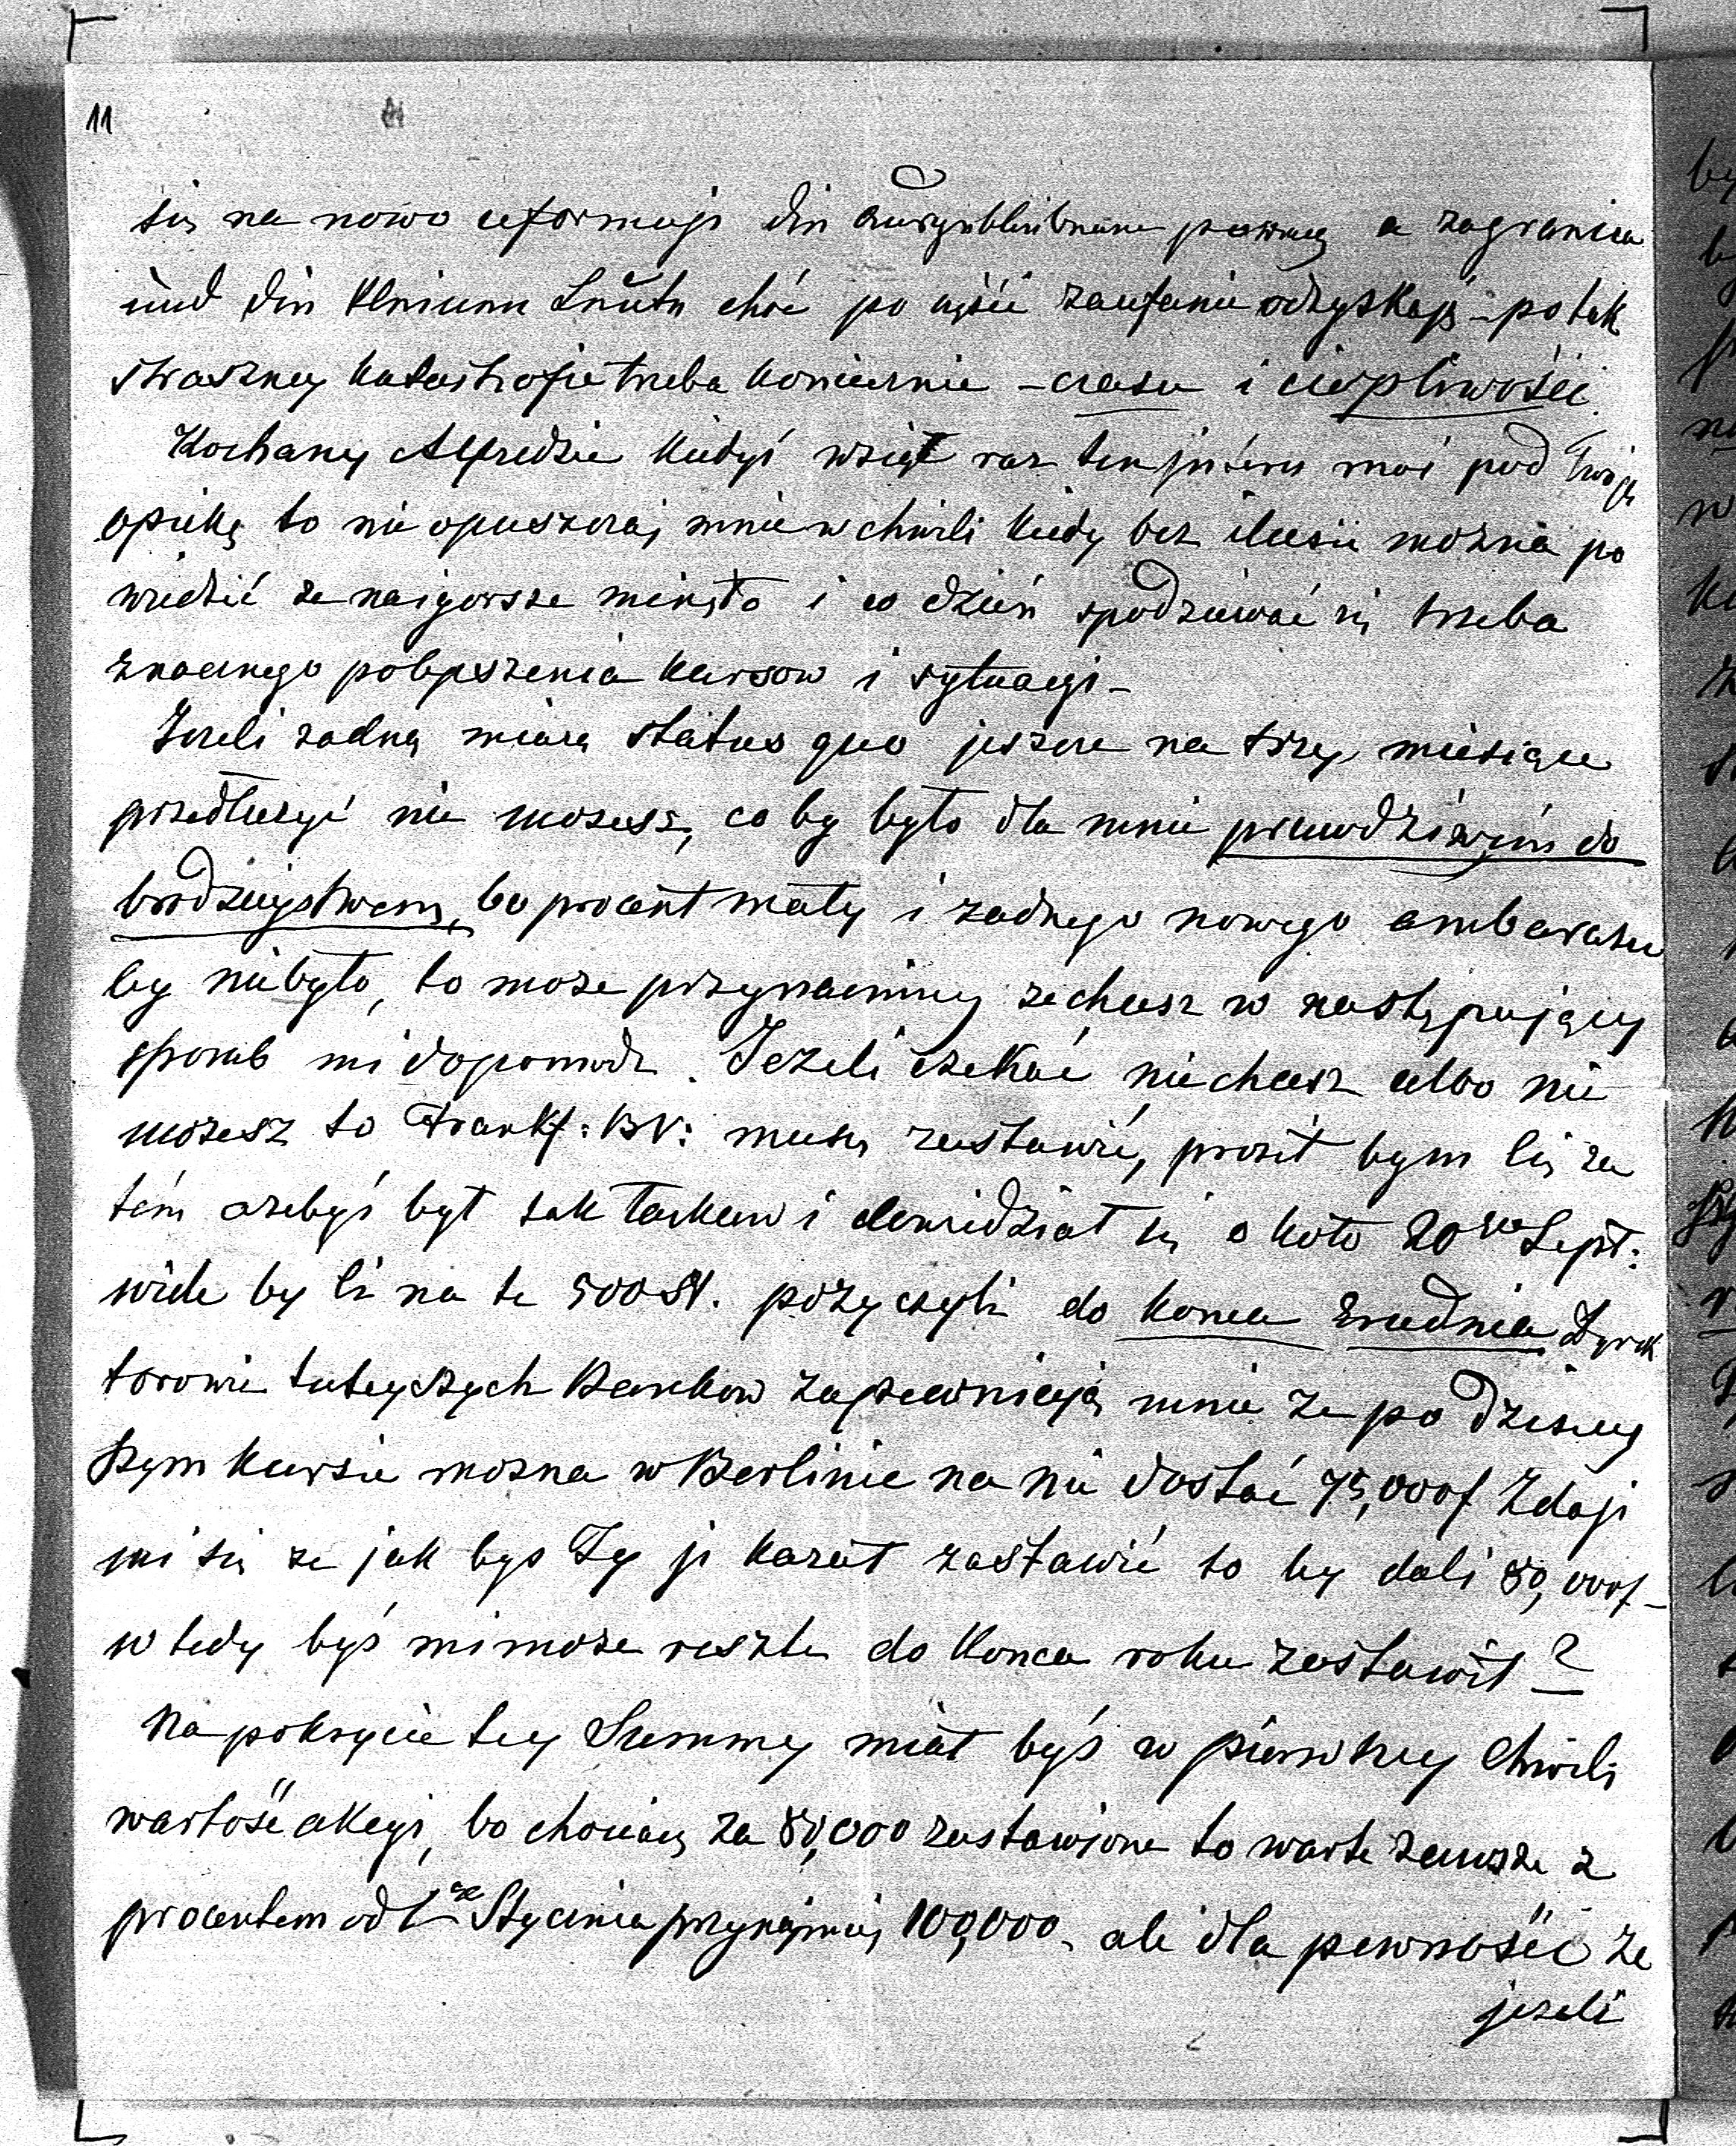 11
się na nowo uformuje die Zurückgebliebenen pewnię a zagranica
und die kleinen Leute choć po części zaufanie odzyskają – po tak
straszney katastrofie trzeba koniecznie – czasu i cierpliwości.
Kochany Alfredzie kiedyś wziął raz ten interes moi pod Twoję
opiekę to nie opuszczaj mnie w chwili kiedy bez ilusii można po
wiedzić ze naigorsze minęło i co dzień spodziewać się trzeba
znacznego polepszenia kursow i sytuacyi –
Jezeli zadną miarą status quo jeszcze na trzy miesiące
przedłuzyć nie mozesz, co by było dla mnie prawdziwym do
brodzieystwem, bo procent mały i zadnego nowego ambarasu
by niebyło, to moze przynaimniey zechcesz w następujący
sposob mi dopomodz. Jezeli czekać niechcesz albo nie
mozesz to Frankf: BV: muszę zastawić, prosił bym Cię za
tém azebyś był tak łaskaw i dowiedział się około 20go Sept:
wiele by Ci na te 500 St. pozyczyli do konca Grudnia Dyrek
torowie tuteyszych Bankow zapewniają mnie ze po dzisiey
szym kursie mozna w Berlinie na nie dostać 75,000 f Zdaje
mi się ze jak bys Ty je kazał zastawić to by dali 80,000 f –
wtedy byś mi moze resztę do konca roku zostawił?
Na pokrycie tey Summy miał byś w pierwszey chwili
wartość akcyi, bo chociaz za 80,000 zastawione to warte zawsze z
procentem od 1go Stycznia przynajmniej 100,000 – ale dla pewności ze
jezeli